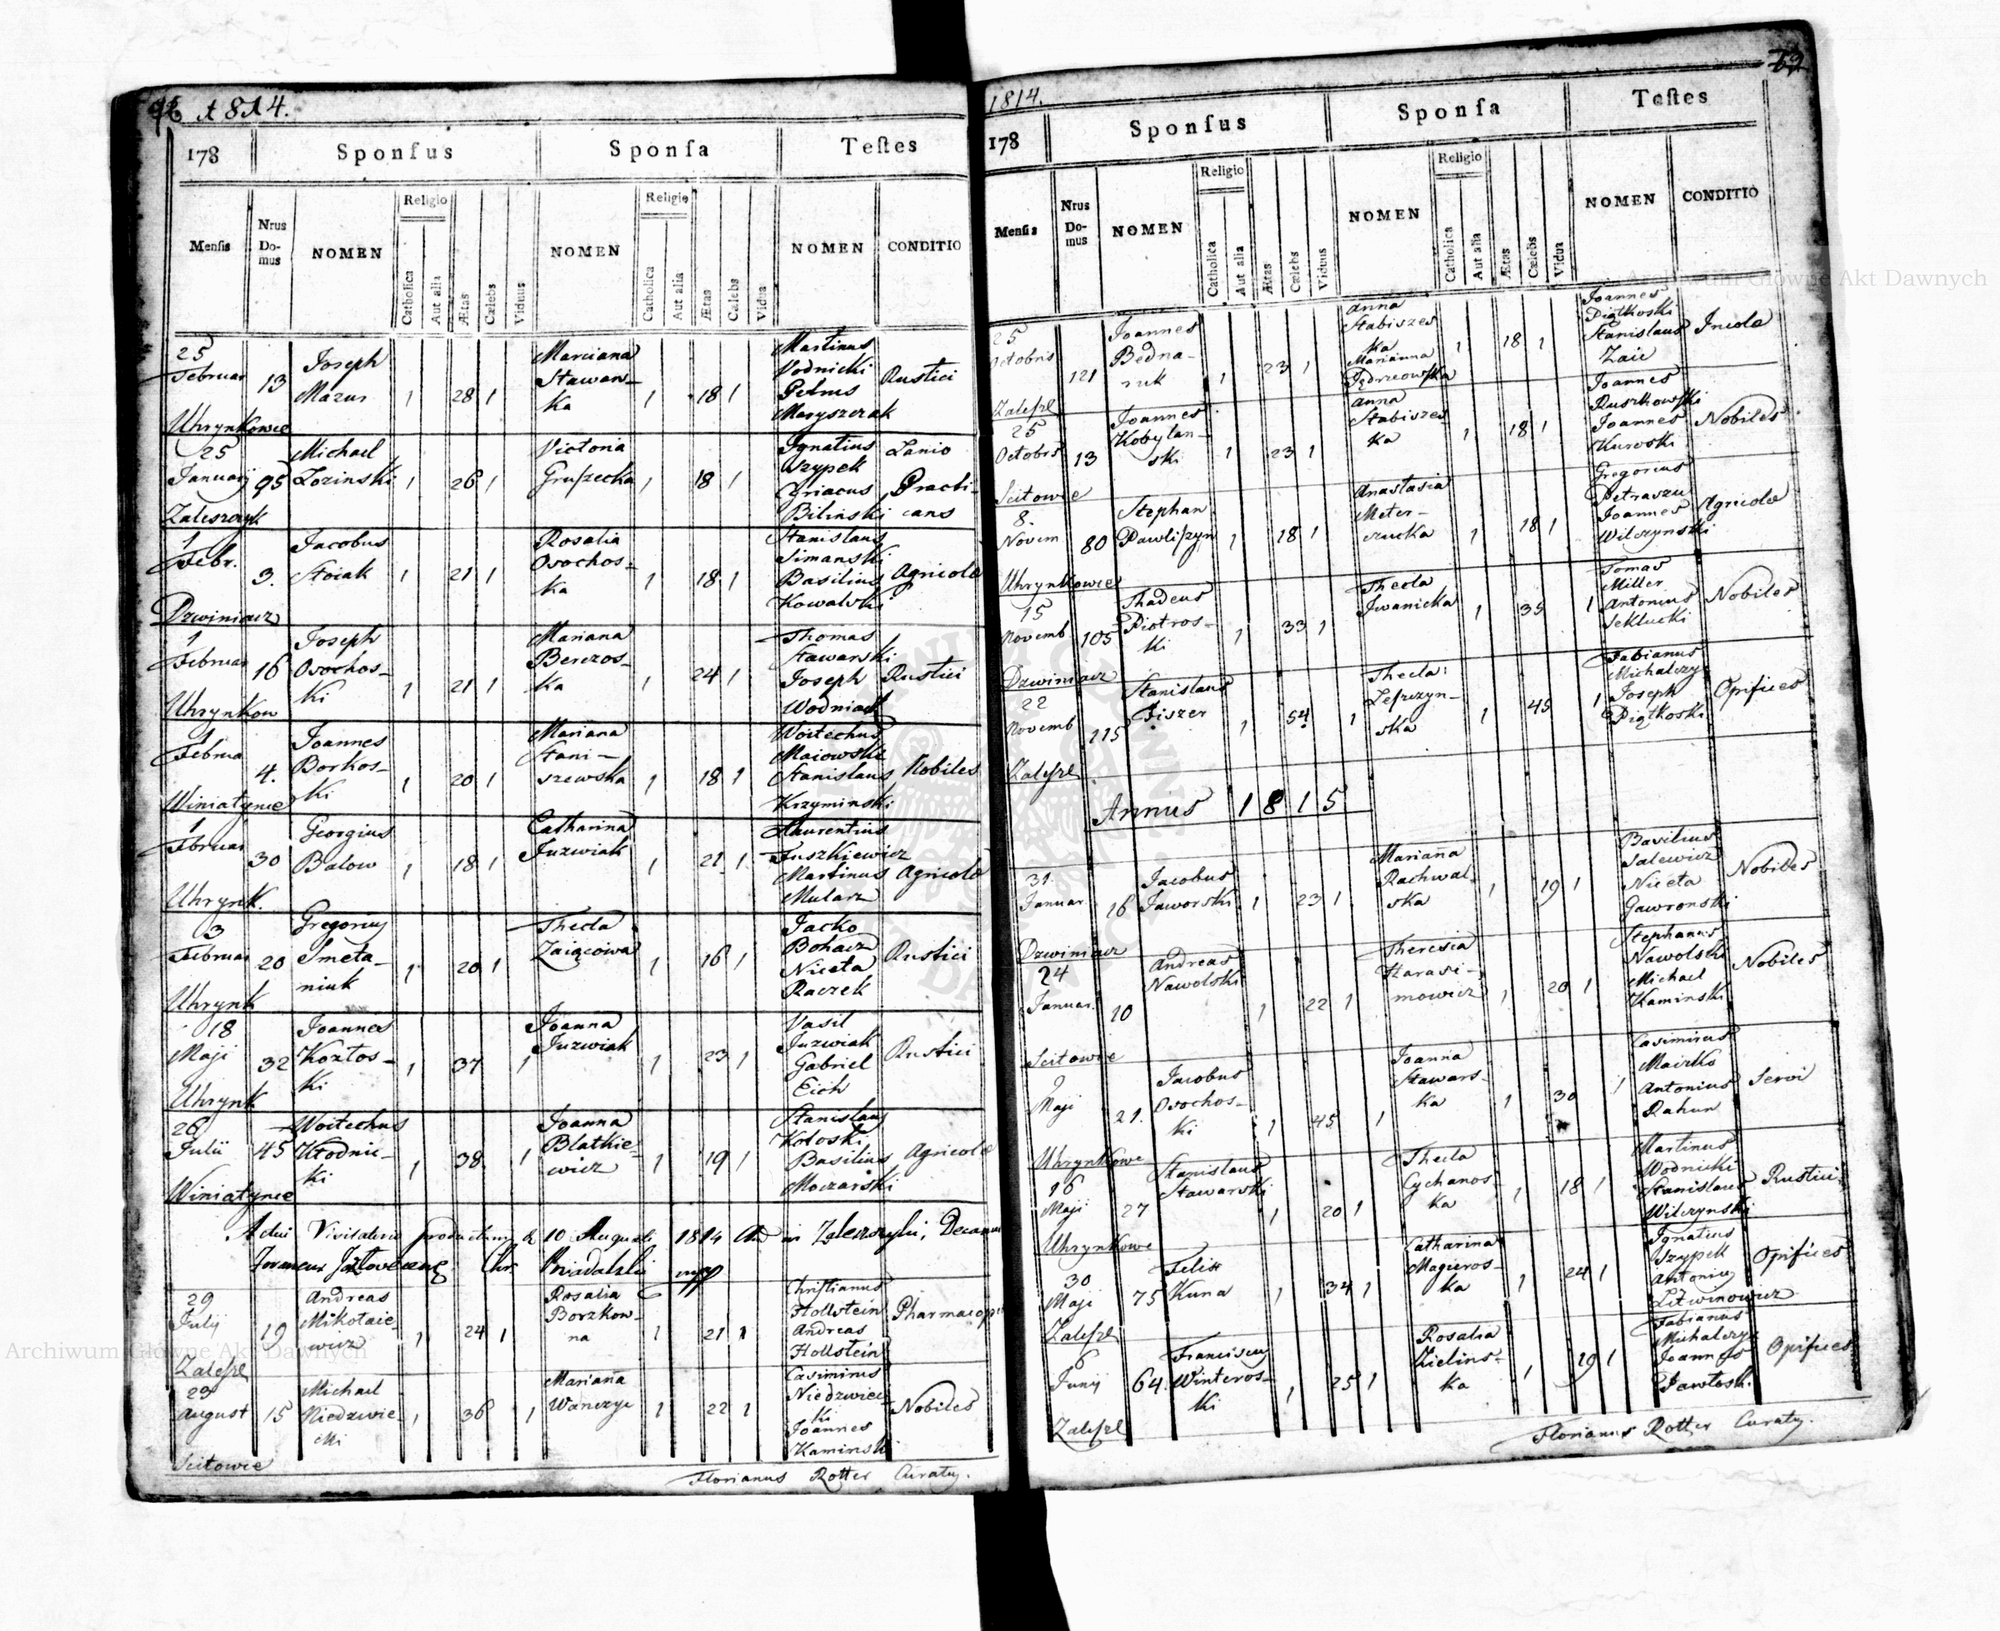 1814.
178
Sponſus
Sponſa
Teſtes
Menſis
Nrus Do-mus
NOMEN
Religio
Catholica
Aut alia
Ætas
Cælebs
Viduus
NOMEN
Religio
Catholica
Aut alia
Ætas
Cælebs
Vidua
NOMEN
CONDITIO
25 Februar Uhrynkowce 13 Joseph Mazur 1 28 1 Marciana Stawan-ka 1 18 1 Martinus Vodnicki Petrus Maryszczak Rustici
25 Januarij Zaleszczyk 95 Michael Lozinski 1 26 1 Victoria Gruſzecka 1 18 1 Ignatius Szypek Cyriacus Bilinski Lanio Practi-cans
1 Febr. Dzwiniacz 3. Jacobus Stoiak 1 21 1 Rosalia Osochos-ka 1 18 1 Stanislaus Simanski Basilius Kowalski Agricolæ
1 Februar Uhrynkow 16 Joseph Osochos-ki 1 21 1 Mariana Berezos-ka 1 24 1 Thomas Stawarski Joseph Wodniack Rustici
1 Februa Winiatynce 4. Joannes Borkos-ki 1 20 1 Mariana Stani-szewska 1 18 1 Woitechus Maiowski Stanislaus Krzyminski Nobiles
1 Februar Uhrynk. 30 Georgius Balow 1 18 1 Catharina Juzwiak 1 21 1 Laurentius Juszkiewicz Martinus Mularz Agricolæ
3 Februar Uhrynk 20 Gregorius Smeta-niuk 1 20 1 Thecla Zaiącowa 1 16 1 Jacko Bohacz Niceta Raczek Rustici
18 Maji Uhrynk 32 Joannes Kozłos-ki 1 37 1 Joanna Juzwiak 1 23 1 Vasil Juzwiak Gabriel Eich Rustici
26 Julii Winiatynce 45 Woitechus Włodnic-ki 1 38 1 Joanna Blatkie-wicz 1 19 1 Stanislaus Kołoski Basilius Moczarski Agricolæ
10 Augusti 1814
29 Julij Zaleſzc 19 Andreas Mikołaie-wicz 1 24 1 Rosalia Borzkow-na 1 21 1 Christianus Hollstein Andreas Hollstein
29 August Scitowce 15 Michael Niedzwie-cki 1 36 1 Mariana Wanczyc 1 22 1 Casimirus Niedzwiec-ki Joannes Kaminski Nobiles
Florianus Rotter Curatus.
1814.
178
Sponſus
Sponſa
Teſtes
Menſis
Nrus Do-mus
NOMEN
Religio
Catholica
Aut alia
Ætas
Cælebs
Viduus
NOMEN
Religio
Catholica
Aut alia
Ætas
Cælebs
Vidua
NOMEN
CONDITIO
25 Octobris Zaleſzc 121 Joannes Bedna-ruk 1 23 1 Anna Stabiszes ka Marianna Jędrzeowſka 1 18 1 Joannes Piątkoski Stanislaus Zaic Incolæ
25 Octobris Scitowce 13 Joannes Kobylan-ski 1 23 1 Anna Stabiszes ka 1 18 1 Joannes Ruszkowſki Joannes Kuroski Nobiles
8. Novem Uhrynkowce 80 Stephan Pawliſzyn 1 18 1 Anastasia Meter-szucka 1 18 1 Gregorius Petraszu Joannes Wilczynski Agricolæ
15 Novemb Dzwiniacz 105 Thadeus Piotros-ki 1 33 1 Thecla Iwanicka 1 35 1 Tomas Miller Antonius Seklucki Nobiles
22 Novemb Zaleſzc 115 Stanislaus Fiszer 1 54 1 Thecla Leſzczyn-ska 1 45 1 Fabianus Michalczyc Joseph Piątkoski Opifices
Annus 1815
31 Januar Dzwiniacz 16 Jacobus Jaworski 1 23 1 Mariana Rachwal-ska 1 19 1 Basilius Salewicz Niceta Gawronski Nobiles
24 Januar. Scitowce 10 Andreas Nawolski 1 22 1 Theresia Harasi-mowicz 1 20 1 Stephanus Nawolski Michael Kaminski Nobiles
9 Maji Uhrynkowce 21. Jacobus Osochos-ki 1 45 1 Joanna Stawars-ka 1 30 1 Casimirus Maizko Antonius Dahun Servi
16 Maji Uhrynkowce 27 Stanislaus Stawarski 1 20 1 Thecla Cychanos-ka 1 18 1 Martinus Wodnicki Stanislaus Wilczynski Rustici
30 Maji Zaleſzc 75 Felix Kuna 1 34 1 Catharina Magieros-ka 1 24 1 Ignatius Szypek Antonius Litwinowicz Opifices
6 Junij Zaleſzc 64. Franciscus Winteros-ki 1 25 1 Rosalia Zielins-ka 1 19 1 Fabianus Michalczyc Joannes Pawłoski Opifices
Florianus Rotter Curatus.
Archiwum Główne Akt Dawnych
Archiwum Główne Akt Dawnych